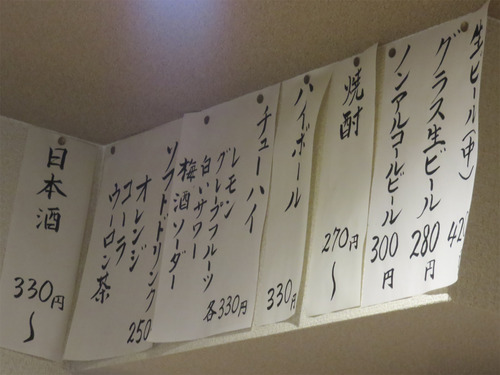 生ビール(中) 42
グラス生ビール 280円
ノンアルコールビール 300円
焼酎 270円〜
ハイボール 330円
チューハイ
レモン
グレープフルーツ
白いサワー
梅酒ソーダー
各330円
ソフトドリンク
オレンジ
コーラ
ウーロン茶
250
日本酒 330円〜